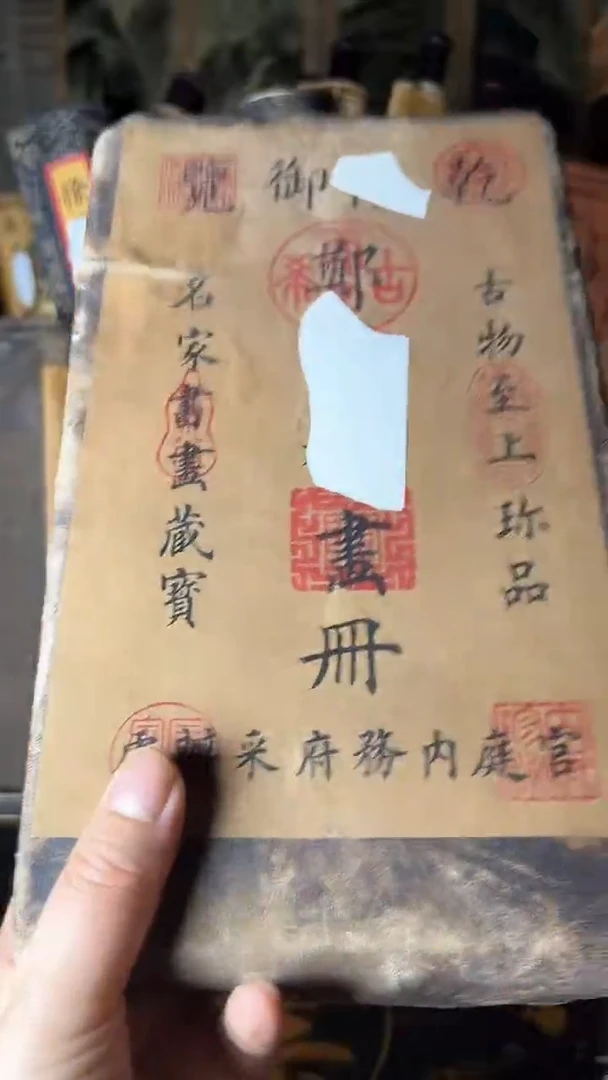 乾御覽
古物至上珎品
鄭
畫冊
名家書畫藏寶
宮庭內務府采